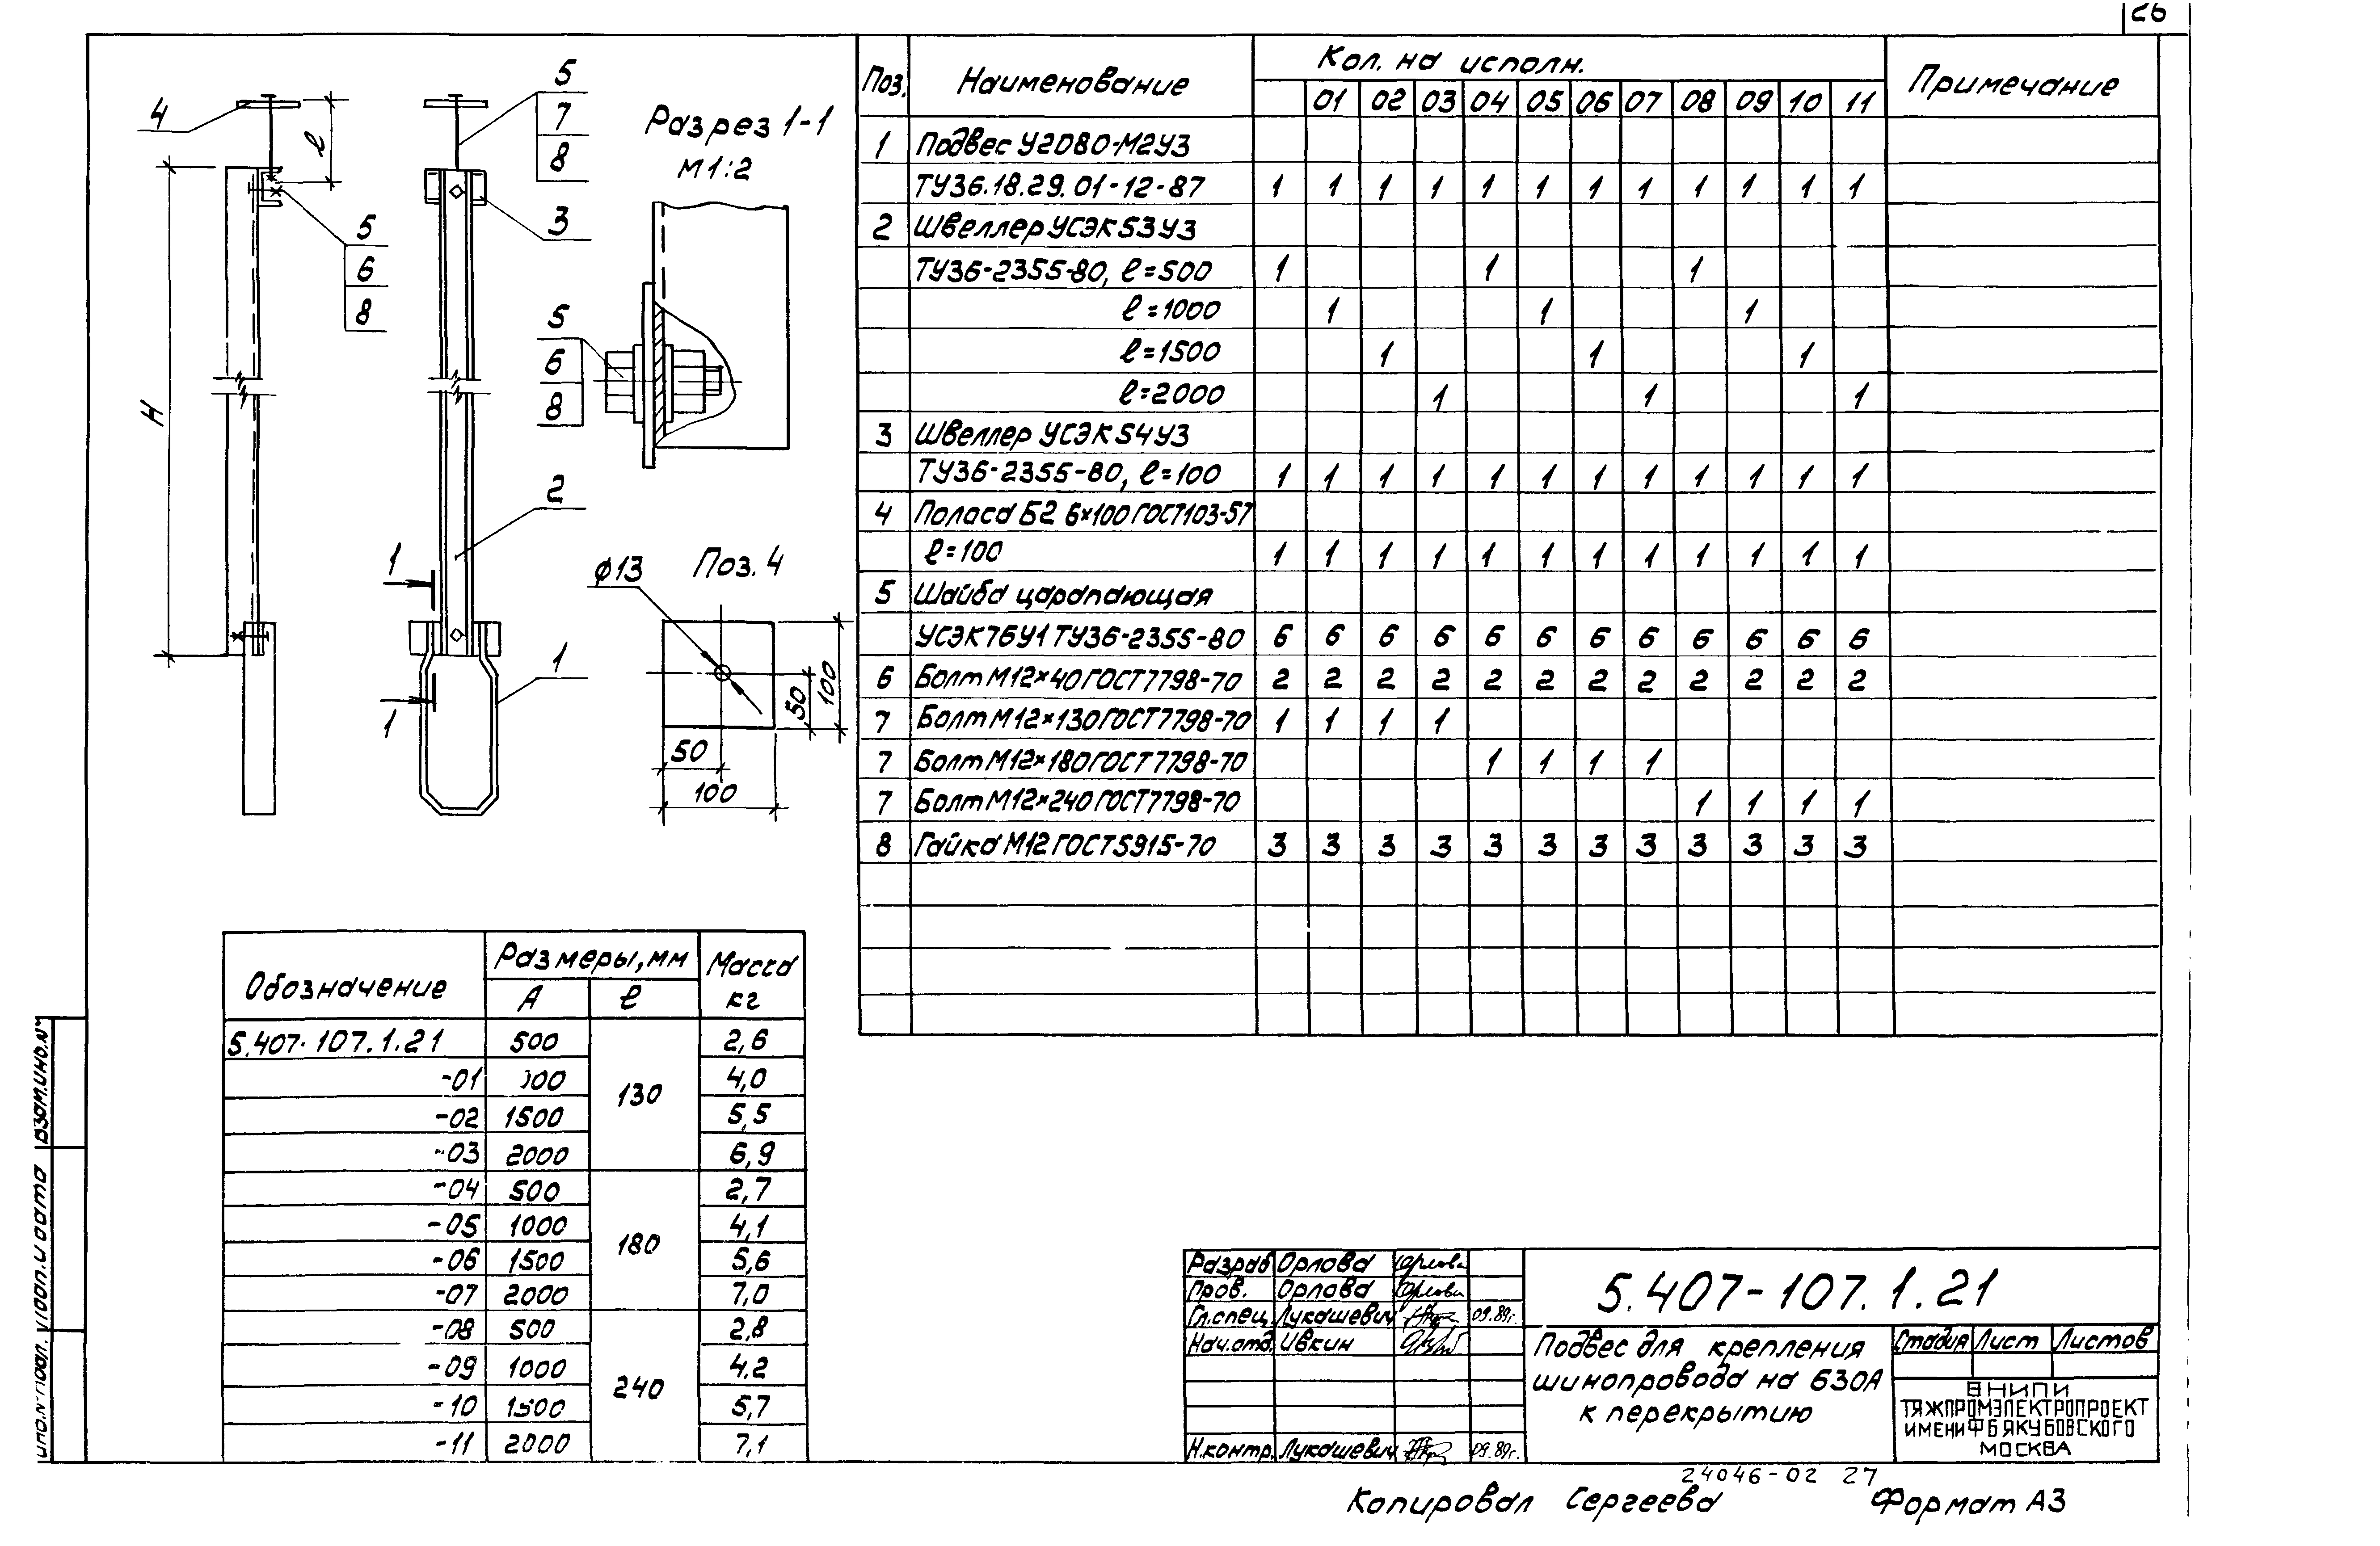 26
4
l
H
5
6
8
5
7
8
3
2
1
1
1
Разрез 1-1
М1:2
5
6
8
Поз. 4
ф13
50
100
50
100
Поз. Наименование Кол. на исполн. Примечание
01 02 03 04 05 06 07 08 09 10 11
1 Подвес У2080-М2У3
ТУ36.18.29.01-12-87 1 1 1 1 1 1 1 1 1 1 1 1
2 Швеллер УСЭК 53У3
ТУ36-2355-80, l=500 1 1 1
l=1000 1 1 1
l=1500 1 1 1
l=2000 1 1 1
3 Швеллер УСЭК 54У3
ТУ36-2355-80, l=100 1 1 1 1 1 1 1 1 1 1 1 1
4 Полоса Б2 6×100 ГОСТ103-57
l=100 1 1 1 1 1 1 1 1 1 1 1 1
5 Шайба царапающая
УСЭК76У1 ТУ36-2355-80 6 6 6 6 6 6 6 6 6 6 6 6
6 Болт М12×40 ГОСТ7798-70 2 2 2 2 2 2 2 2 2 2 2 2
7 Болт М12×130 ГОСТ7798-70 1 1 1 1
7 Болт М12×180 ГОСТ7798-70 1 1 1 1
7 Болт М12×240 ГОСТ7798-70 1 1 1 1
8 Гайка М12 ГОСТ5915-70 3 3 3 3 3 3 3 3 3 3 3 3
Обозначение Размеры, мм Масса кг
А l
5.407-107.1.21 500 130 2,6
-01 4,0
-02 1500 5,5
-03 2000 6,9
-04 500 180 2,7
-05 1000 4,1
-06 1500 5,6
-07 2000 7,0
-08 500 240 2,8
-09 1000 4,2
-10 1500 5,7
-11 2000 7,1
Взам.инв.№
Разраб Орлова
Пров. Орлова
Гл.спец. Лукашевич 09.89г.
Нач.отд. Ивкин
Н.контр. Лукашевич 09.89г.
5.407-107.1.21
Подвес для крепления
шинопровода на 630А
к перекрытию
Стадия Лист Листов
ВНИПИ
ТЯЖПРОМЭЛЕКТРОПРОЕКТ
ИМЕНИ Ф Б ЯКУБОВСКОГО
МОСКВА
24046-02 27
Копировал Сергеева Формат А3